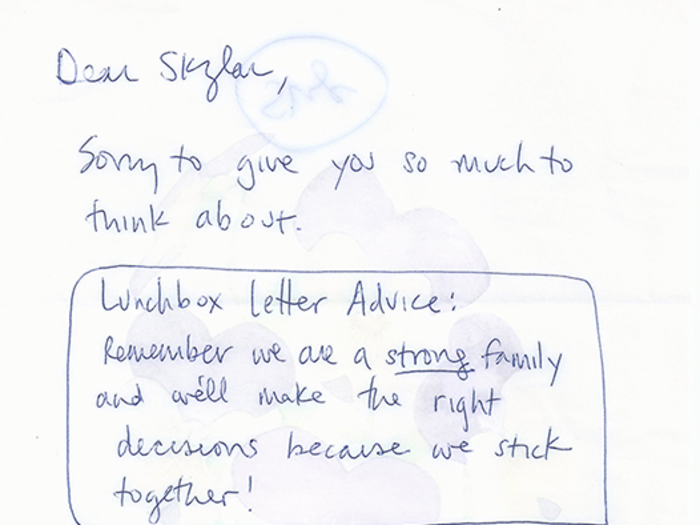 Dear Skylar,
Sorry to give you so much to
think about.
Lunchbox Letter Advice:
Remember we are a strong family
and we'll make the right
decisions because we stick
together!